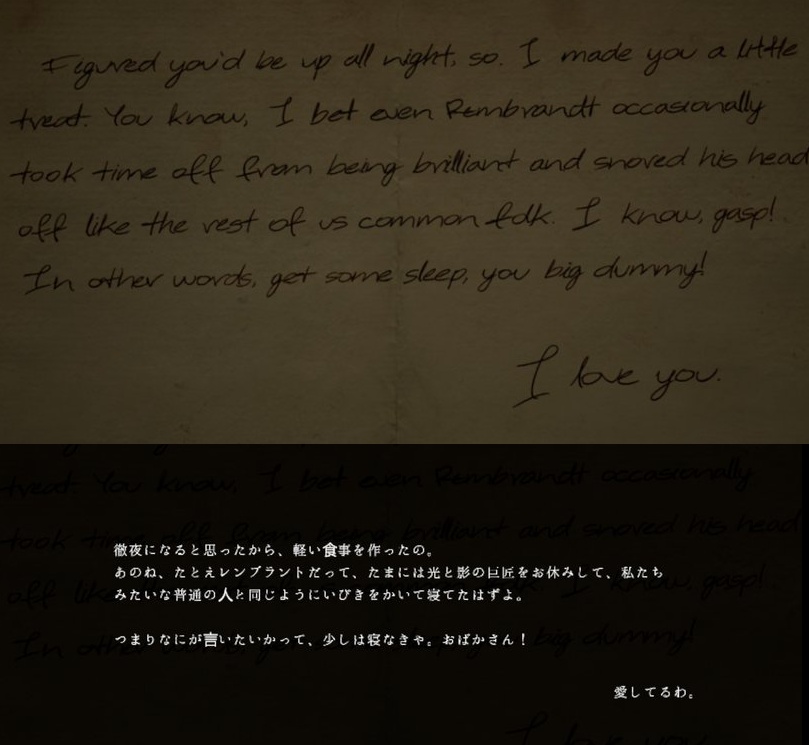 Figured you'd be up all night, so. I made you a little
treat. You know, I bet even Rembrandt occasionally
took time off from being brilliant and snored his head
off like the rest of us common folk. I know, gasp!
In other words, get some sleep, you big dummy!
I love you.
treat. You know, I bet even Rembrandt occasionally
took time off from being brilliant and snored his head
off like know, gasp!
In other big dummy!
徹夜になると思ったから、軽い食事を作ったの。
あのね、たとえレンブラントだって、たまには光と影の巨匠をお休みして、私たち
みたいな普通の人と同じようにいびきをかいて寝てたはずよ。
つまりなにが言いたいかって、少しは寝なきゃ。おばかさん！
愛してるわ。